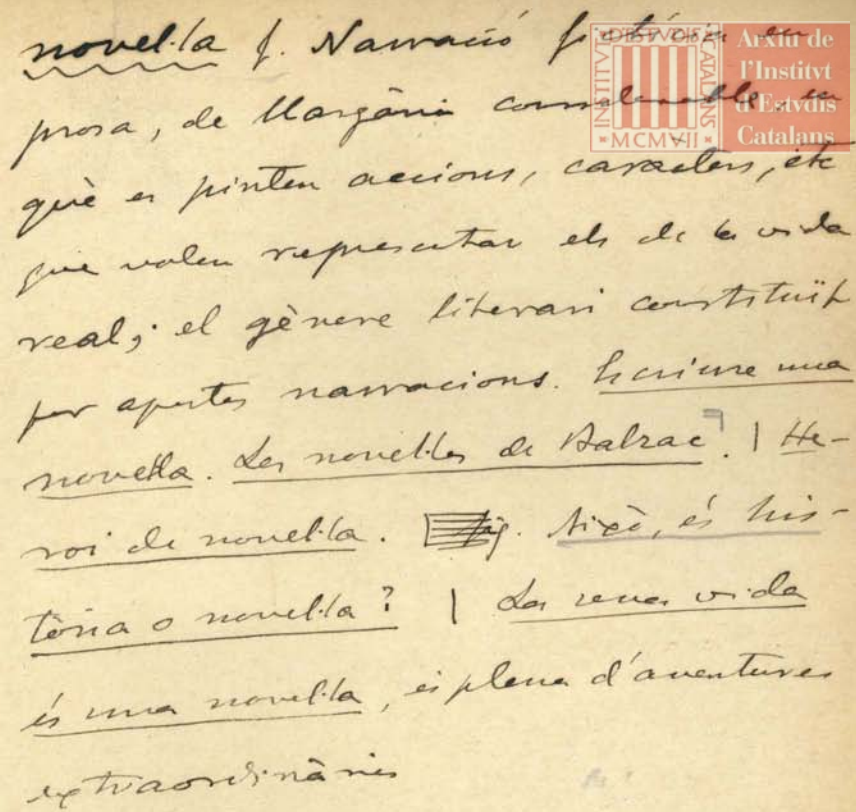 novel·la f. Narració fictícia en
prosa, de llargària considerable, en
què es pinten accions, caràcters, etc
que volen representar els de la vida
real; el gènere literari constituït
per aquestes narracions. Escriure una
novel·la. Les novel·les de Balzac. | He-
roi de novel·la. fig. Això, és his-
tòria o novel·la? | La seva vida
és una novel·la, és plena d'aventures
extraordinàries
INSTITVT D'ESTVDIS CATALANS
MCMVII
Arxiu de
l'Institvt
d'Estvdis
Catalans